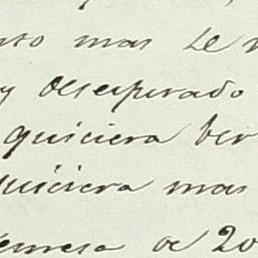 nto mas se
y desesperado
quiciera ber
quiciera mas
remesa de 20